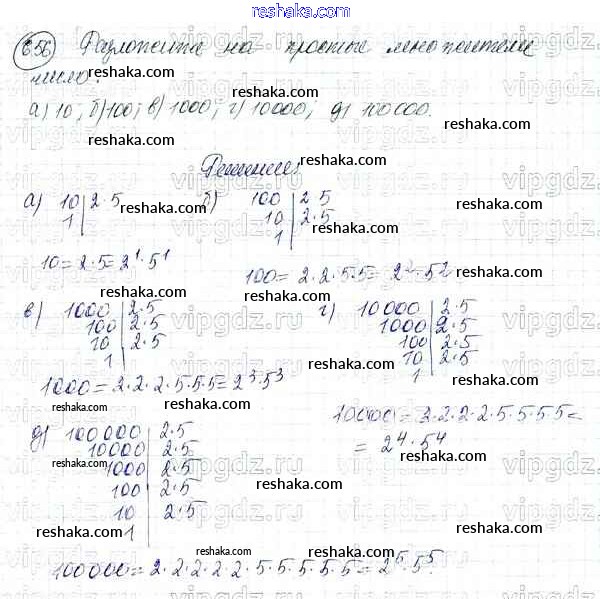 656 Разложите на простые множители
число:
а) 10; б) 100; в) 1000; г) 10000; д) 100000.
Решение:
а) 10 | 2·5
1
10 = 2·5 = 2¹·5¹
б) 100 | 2·5
10 | 2·5
1
100 = 2·2·5·5 = 2²·5²
в) 1000 | 2·5
100 | 2·5
10 | 2·5
1
1000 = 2·2·2·5·5·5 = 2³·5³
г) 10000 | 2·5
1000 | 2·5
100 | 2·5
10 | 2·5
1
10000 = 2·2·2·2·5·5·5·5 =
= 2⁴·5⁴
д) 100000 | 2·5
10000 | 2·5
1000 | 2·5
100 | 2·5
10 | 2·5
1
100000 = 2·2·2·2·2·5·5·5·5·5 = 2⁵·5⁵
reshaka.com
vipgdz.ru